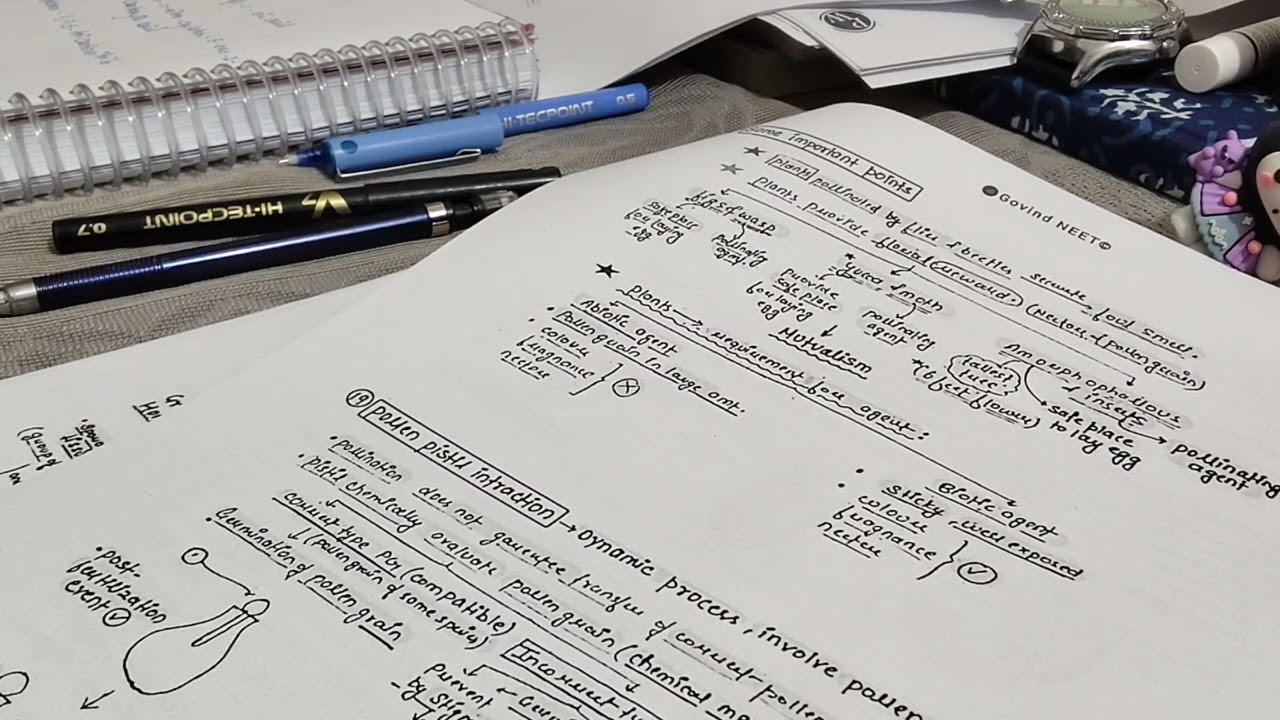 HI-TECPOINT 0.5
V7 HI-TECPOINT 0.7
PW
Govind NEET©
Some important points
★ plants pollinated by flies & beetles secrete foul smell.
★ Plants provide floral reward (Nector & pollen grain)
pollinating agent
egg
* Yucca & moth
provide safe place for laying egg
pollinating agent
Mutualism
Amorphophallous
* (6 feet flower)
insects
safe place to lay egg
pollinating agent
★ Plants → requirement for agent:
Abiotic agent
• Pollen grain in large amt.
• colour
fragnance
Biotic agent
• Sticky, well exposed
• colour
fragnance
19 Pollen pistil intraction → Dynamic process, involve pollen
• pollination does not garentee transfer of correct pollen
• pistil chemically evaluate pollen grain (chemical
correct type PG (compatible)
(pollen grain of same
• Germination of pollen grain
Incorrect
prevent
• post-fertilization event
(group of